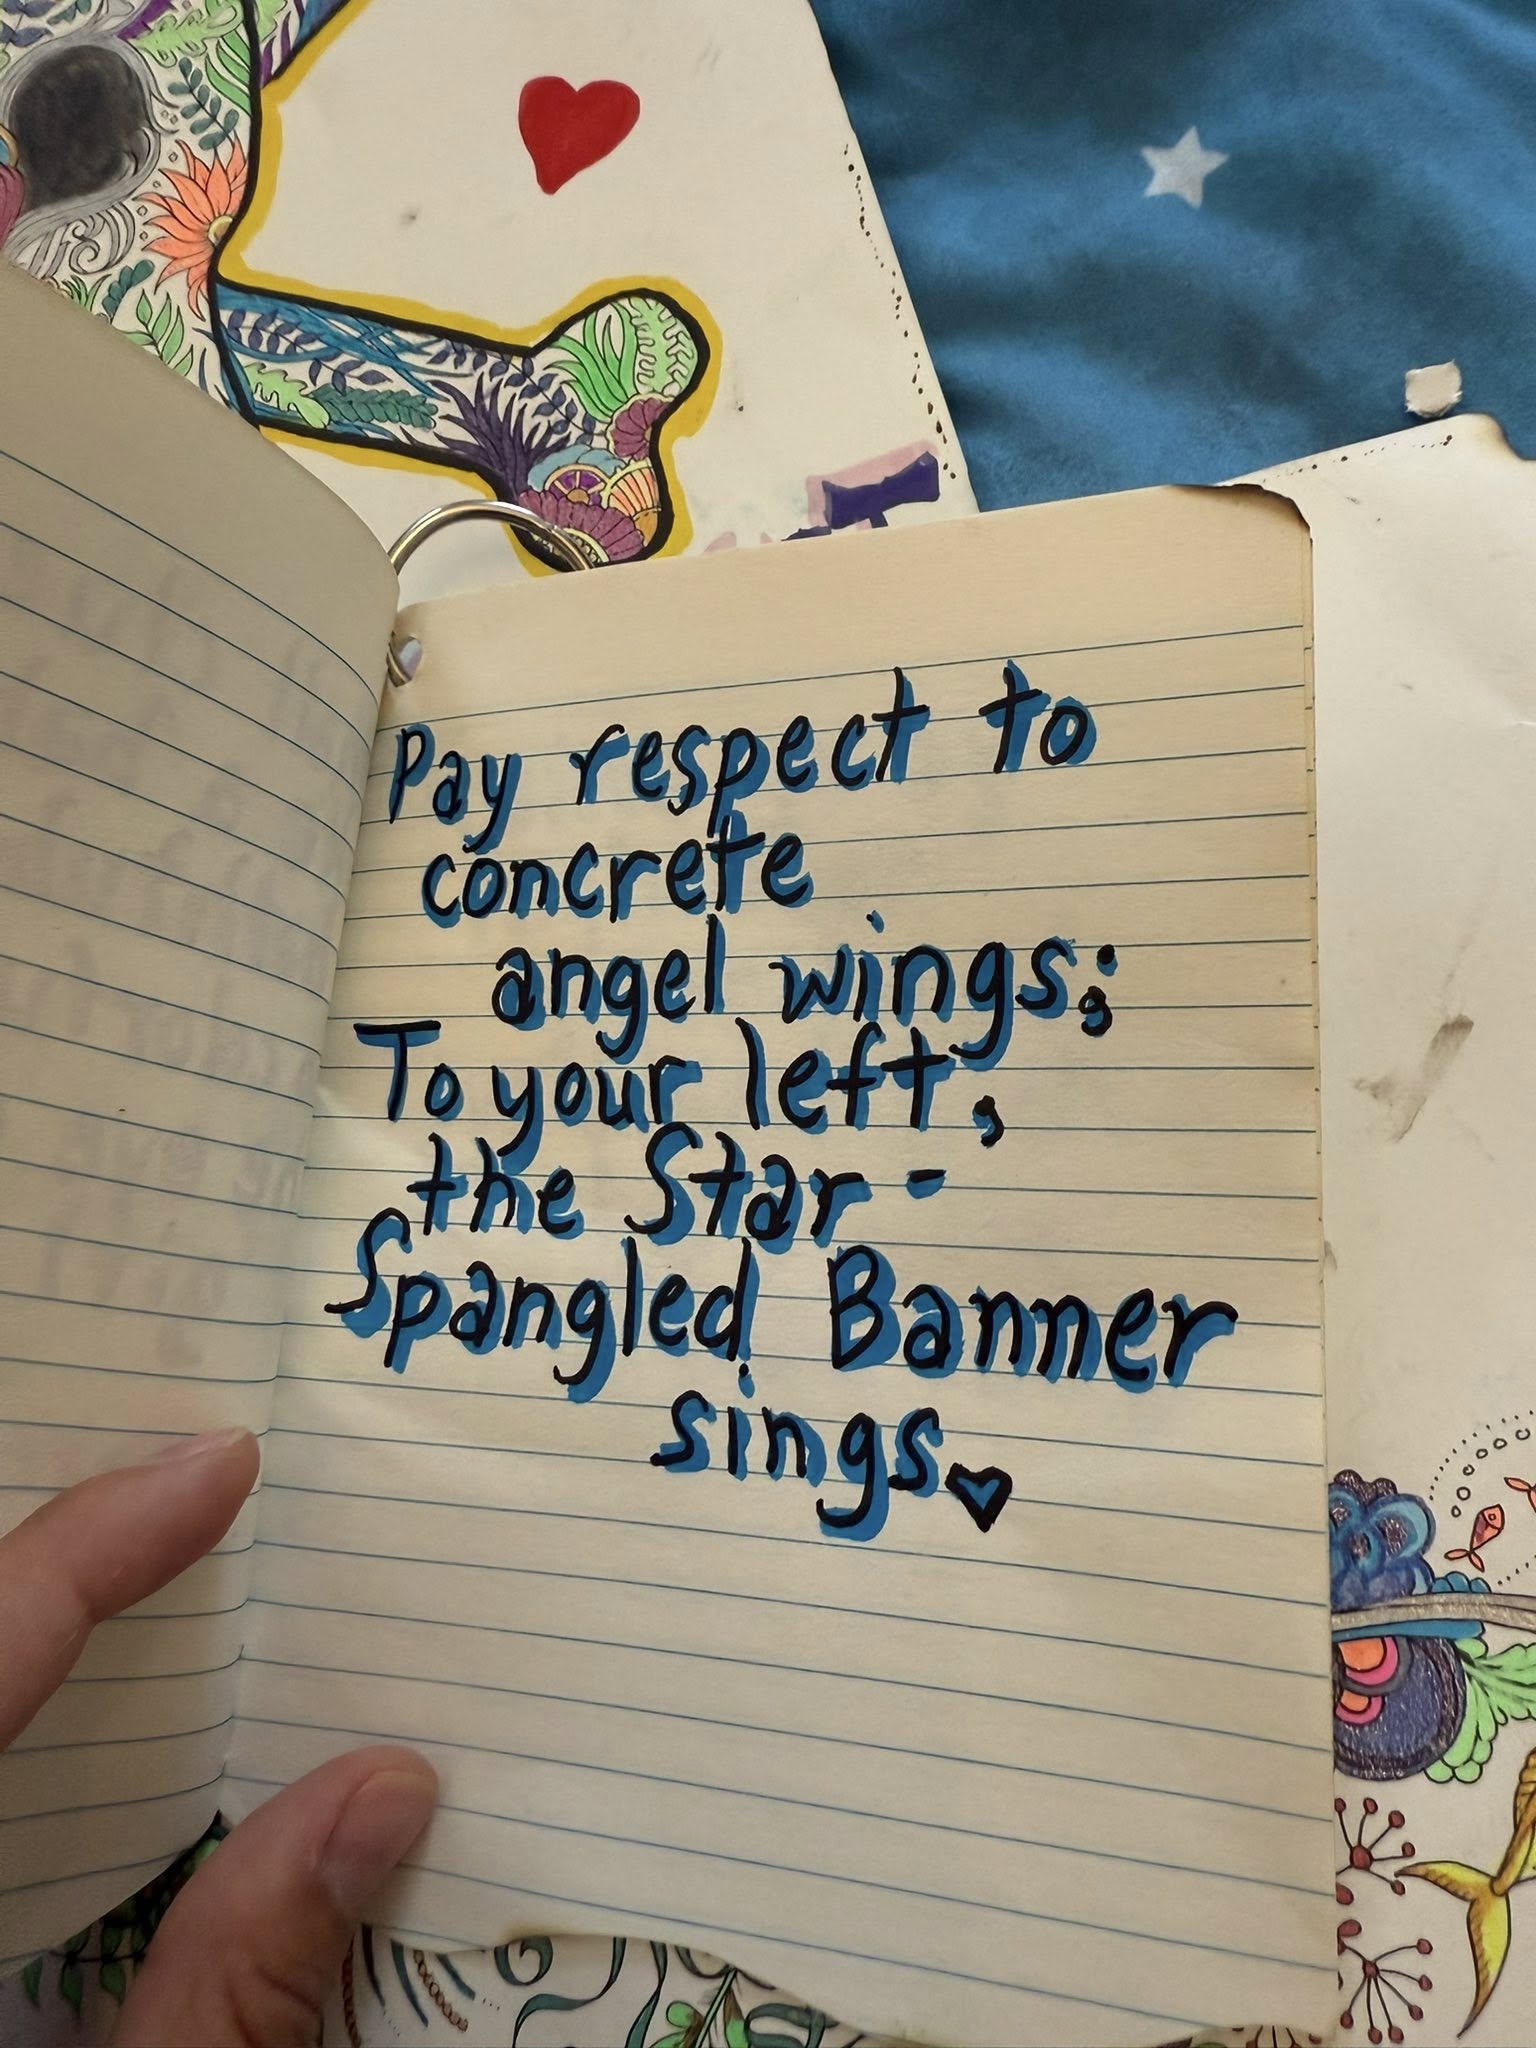 Pay respect to
concrete
angel wings;
To your left,
the Star-
Spangled Banner
sings